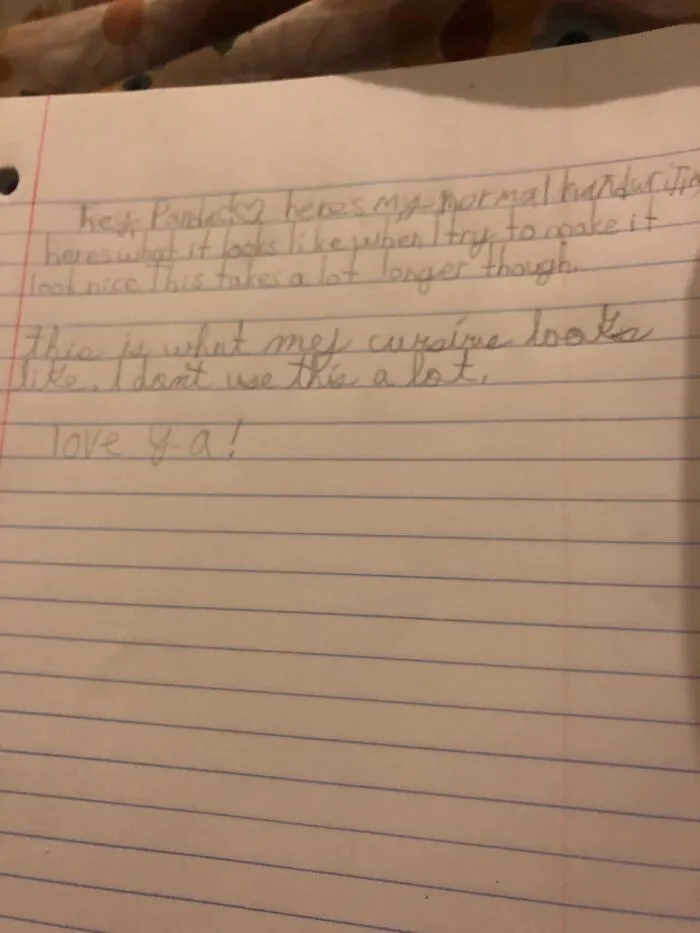 hey Pandas♡ heres my normal handwriting
heres what it looks like when I try to make it
look nice This takes a lot longer though.
this is what my cursive looks
like. I don't use this a lot.
love ya!